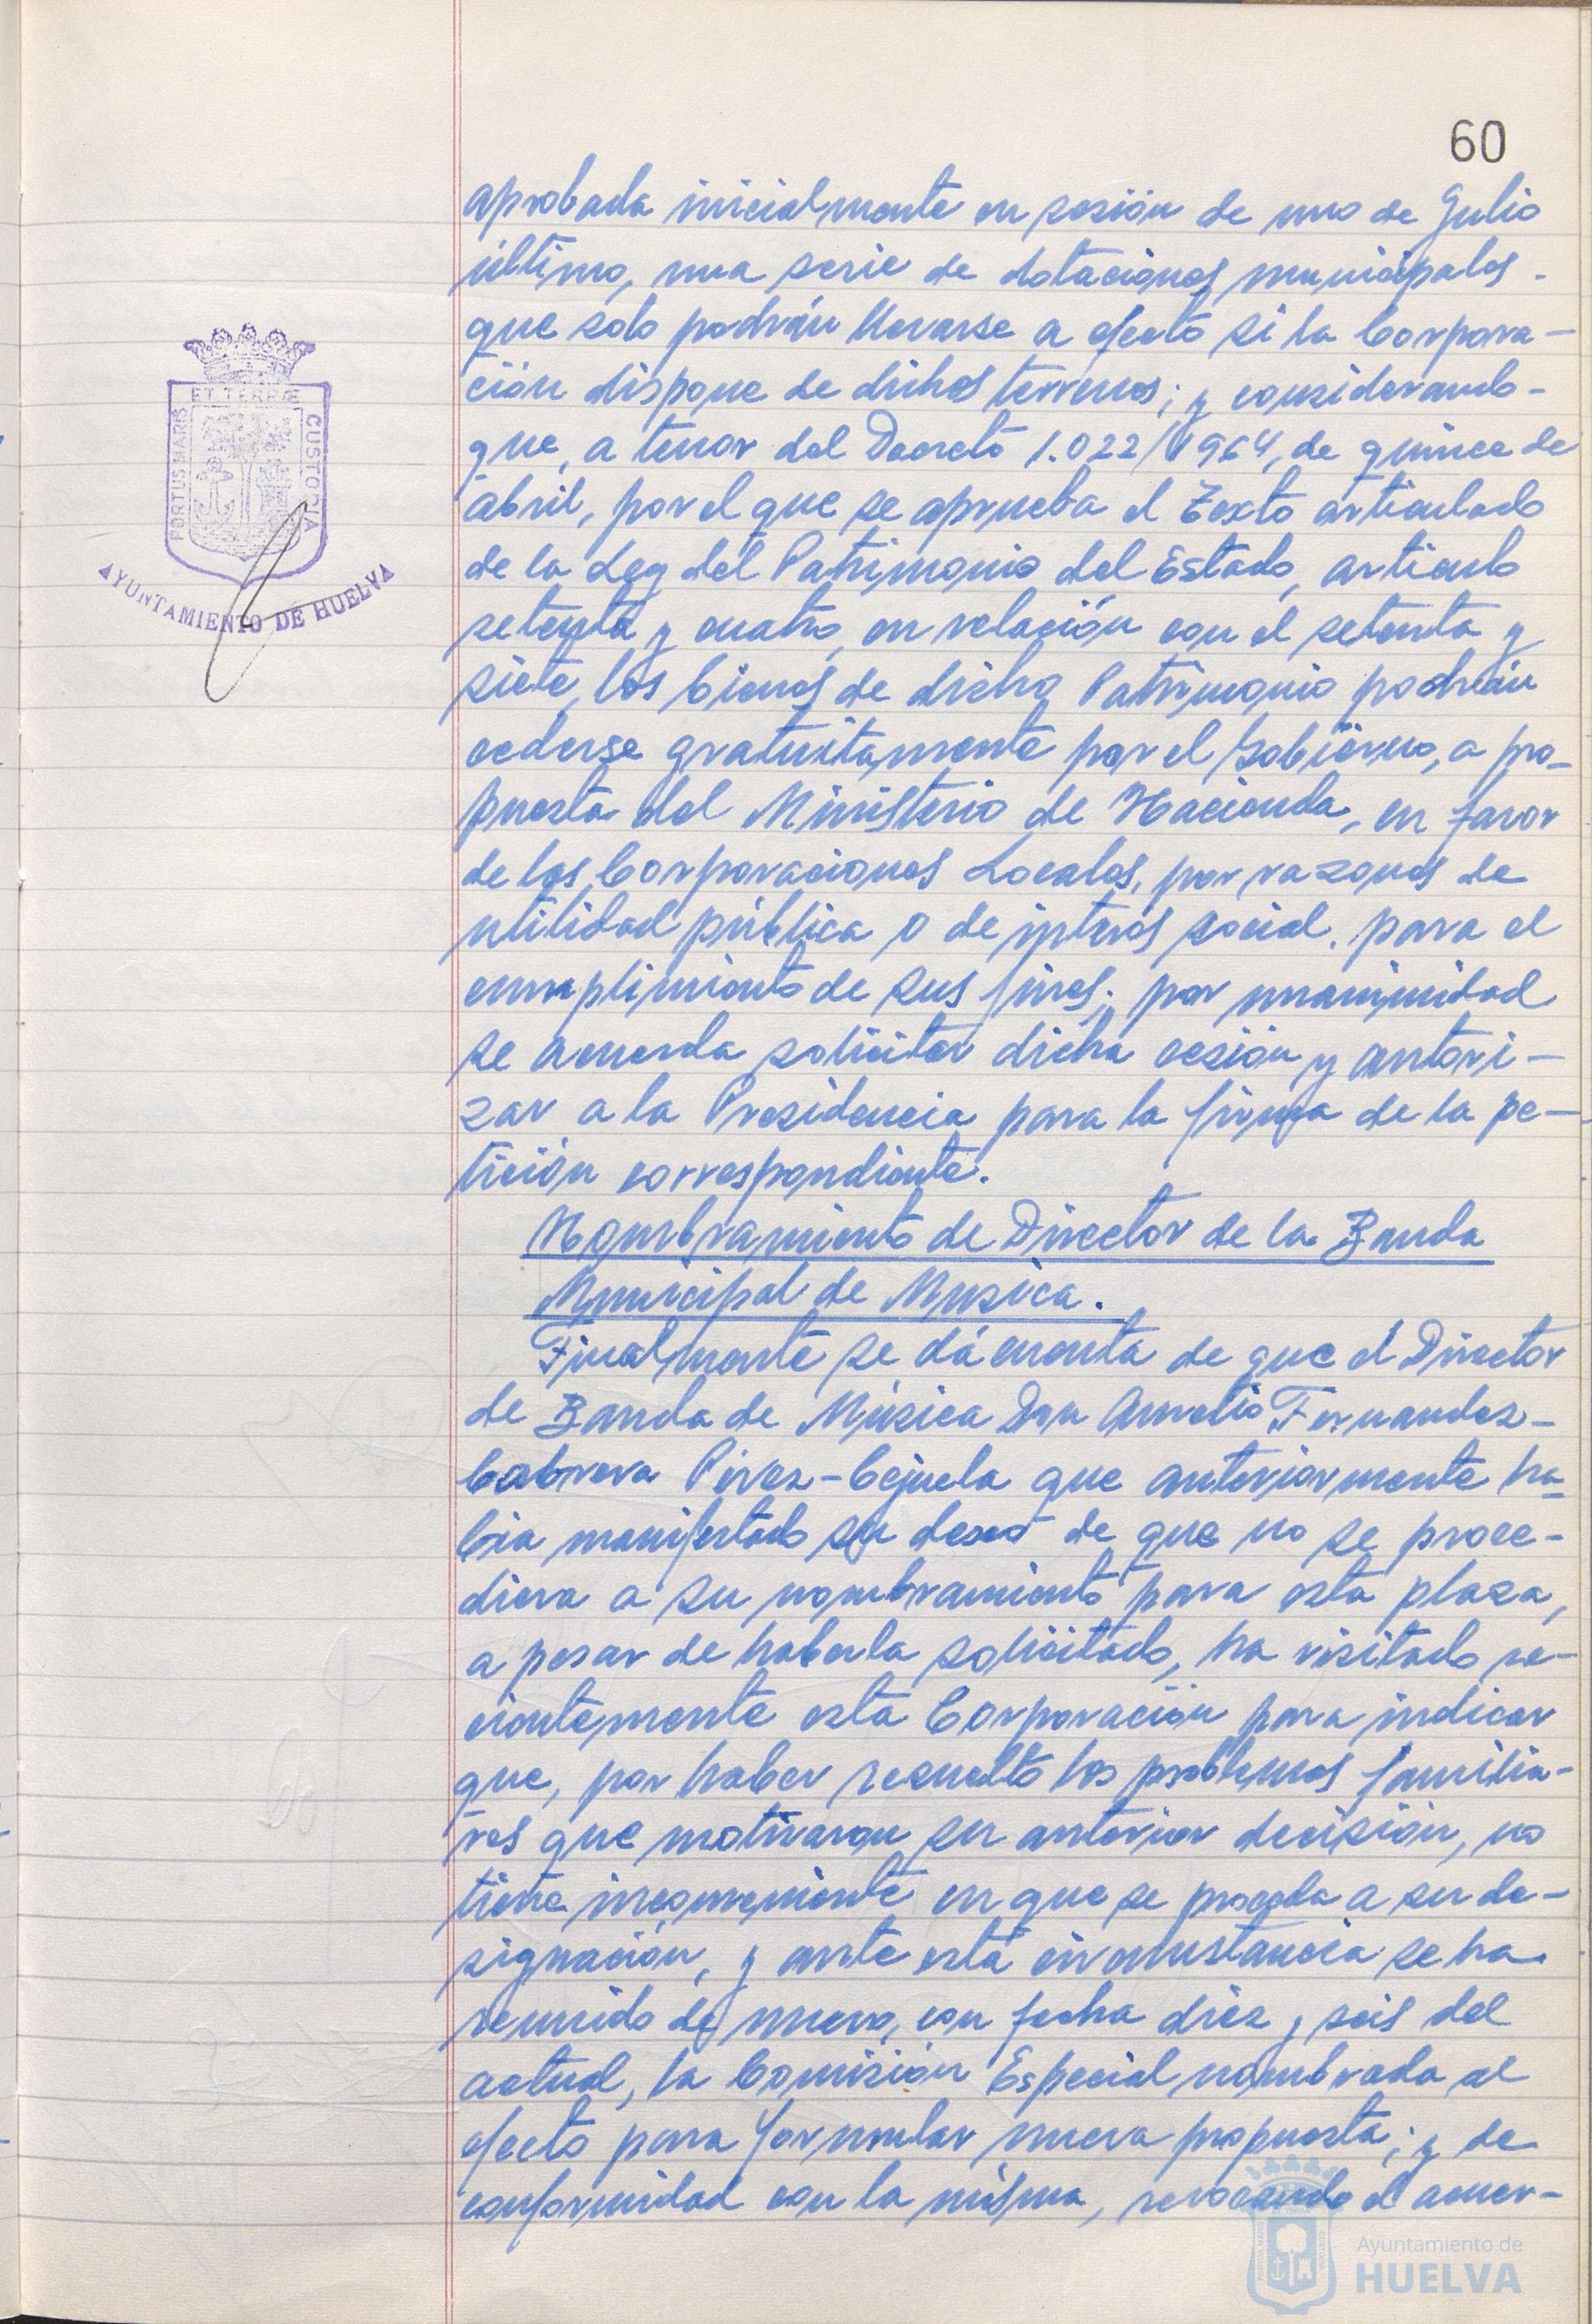 60
aprobada inicialmente en sesión de uno de Julio
último, una serie de dotaciones municipales -
que solo podrán llevarse a efecto si la Corpora-
ción dispone de dichos terrenos; y considerando -
que, a tenor del Decreto 1.022/1964, de quince de
abril, por el que se aprueba el Texto articulado
de la Ley del Patrimonio del Estado, articulo
setenta y cuatro, en relación con el setenta y
siete, los bienes de dicho Patrimonio podrán
cederse gratuitamente por el Gobierno, a pro-
puesta del Ministerio de Hacienda, en favor
de las Corporaciones Locales, por razones de
utilidad pública o de interés social, para el
cumplimiento de sus fines; por unanimidad
se acuerda solicitar dicha cesión y autori-
zar a la Presidencia para la firma de la pe-
tición correspondiente.
Nombramiento de Director de la Banda
Municipal de Musica.
Finalmente se dá cuenta de que el Director
de Banda de Música Don Aurelio Fernandez-
Cabrera Pérez-Cejuela que anteriormente ha-
bia manifestado su deseo de que no se proce-
diera a su nombramiento para esta plaza,
a pesar de haberla solicitado, ha visitado re-
cientemente esta Corporación para indicar
que, por haber resuelto los problemas familia-
res que motivaron su anterior decisión, no
tiene inconveniente en que se proceda a su de-
signación, y ante esta circunstancia se ha
reunido de nuevo, con fecha diez y seis del
actual, la Comisión Especial nombrada al
efecto para formular nueva propuesta; y de
conformidad con la misma, revocando el acuer-
PORTUS MARIS ET TERRÆ CUSTODIA
AYUNTAMIENTO DE HUELVA
Ayuntamiento de
HUELVA